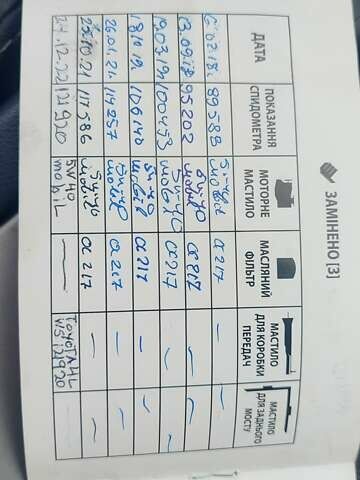 ЗАМІНЕНО [3]
ДАТА
ПОКАЗАННЯ СПІДОМЕТРА
МОТОРНЕ МАСТИЛО
МАСЛЯНИЙ ФІЛЬТР
МАСТИЛО ДЛЯ КОРОБКИ ПЕРЕДАЧ
МАСТИЛО ДЛЯ ЗАДНЬОГО МОСТУ
89588 5w-40 mobil α 217 —
95202 5w-40 mobil α 217 —
19.03.19 100453 5w-40 mobil α 217 — —
106140 5w-40 mobil α 217 — —
26.01.21 114257 5w-40 mobil α 217 — —
25.10.21 117586 5w-40 mobil α 217 — —
24.12.22 121920 5W40 mobil — TOYOTA WS 121920